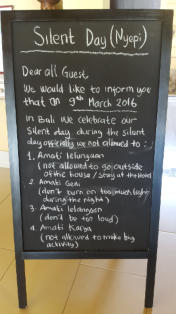 Silent Day (Nyepi)
Dear all Guest
We would like to inform you
that on 9th March 2016
In Bali we celebrate our
Silent day, during the silent
day officially we not allowed to :
1. Amati lelungaan
(not allowed to go outside
of the house / stay at the Hotel)
2. Amati Geni
(don't turn on too much light
during the night)
3. Amati lelangoan
(don't be too loud)
4. Amati Karya
(not allowed to make big
activity)